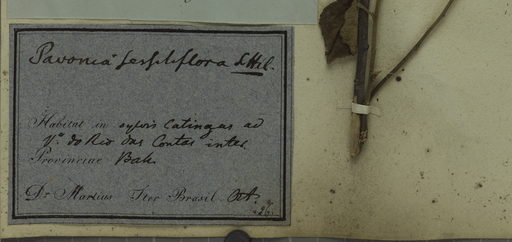 Pavonia sessiliflora St Hil.
Habitat in sylvis Catingas ad
V.ª do Rio das Contas inter.
Provinciae Bah.
Dr Martius Iter Brasil. Oct.